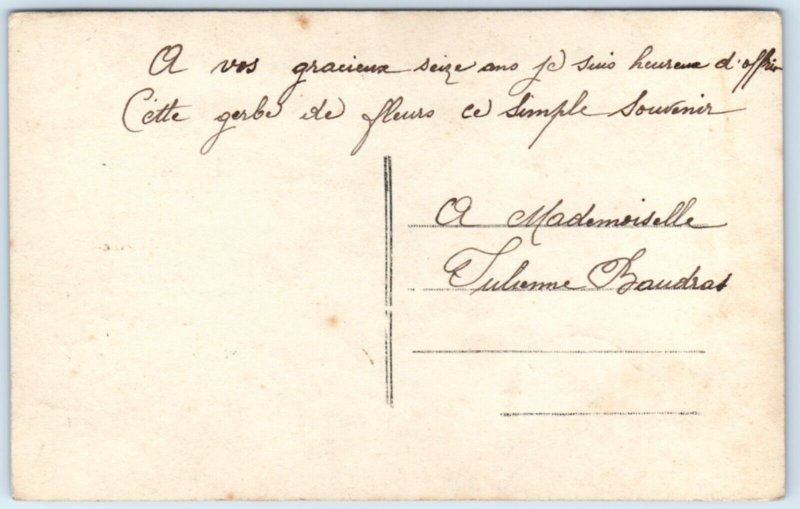 A vos gracieux seize ans je suis heureux d'offrir
Cette gerbe de fleurs ce simple Souvenir
A Mademoiselle
Julienne Baudras